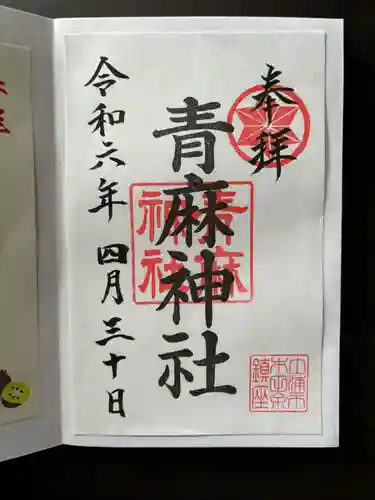 奉拝
青麻神社
青麻神社
令和六年 四月三十日
鎮座